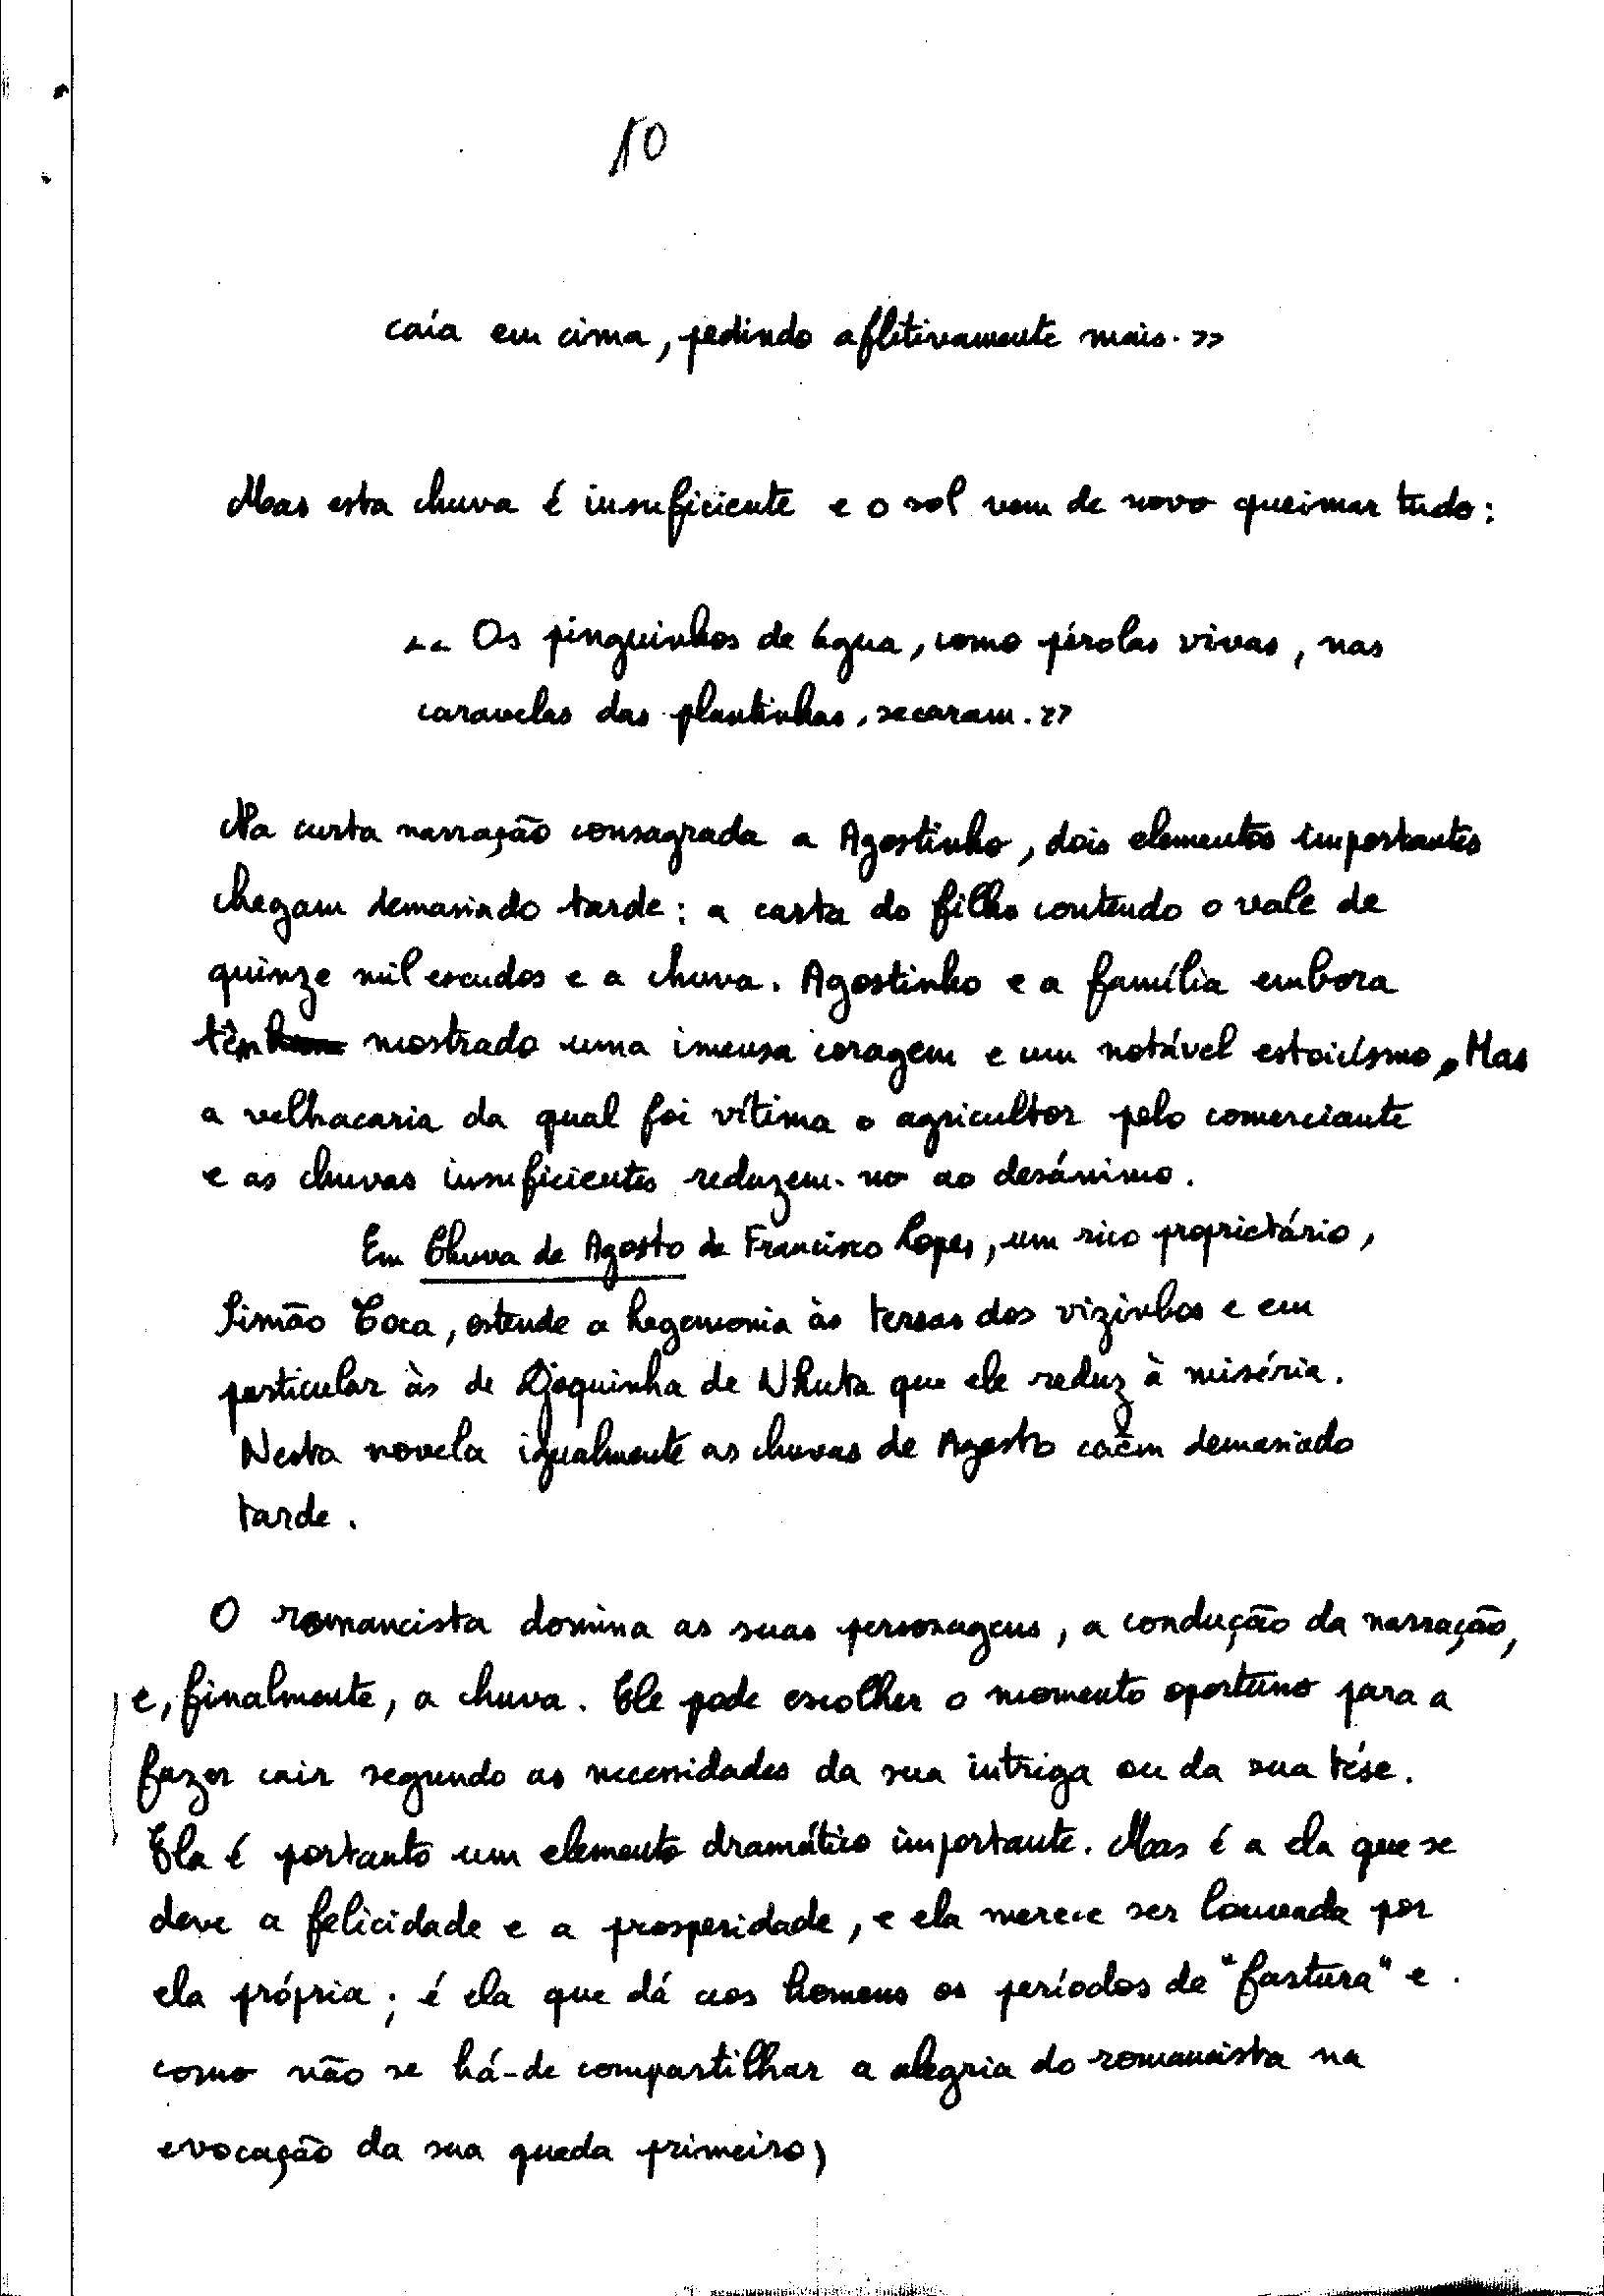 10
caía em cima, pedindo aflitivamente mais. >>
Mas esta chuva é insuficiente e o sol vem de novo queimar tudo:
<< Os pinguinhos de água, como pérolas vivas, nas
caravelas das plantinhas, secaram. >>
Na curta narração consagrada a Agostinho, dois elementos importantes
chegam demasiado tarde: a carta do filho contendo o vale de
quinze mil escudos e a chuva. Agostinho e a família embora
têm mostrado uma imensa coragem e um notável estoicismo. Mas
a velhacaria da qual foi vítima o agricultor pelo comerciante
e as chuvas insuficientes reduzem-no ao desánimo.
Em Chuva de Agosto de Francisco Lopes, um rico proprietário,
Simão Coca, estende a hegemonia às terras dos vizinhos e em
particular às de Djoquinha de Nhuta que ele reduz à miséria.
Nesta novela igualmente as chuvas de Agosto caêm demasiado
tarde.
O romancista domina as suas personagens, a condução da narração,
e, finalmente, a chuva. Ele pode escolher o momento oportuno para a
fazer cair segundo as necessidades da sua intriga ou da sua tése.
Ela é portanto um elemento dramático importante. Mas é a ela que se
deve a felicidade e a prosperidade, e ela merece ser louvada por
ela própria; é ela que dá aos homens os períodos de "fartura" e
como não se há-de compartilhar a alegria do romancista na
evocação da sua queda primeiro,